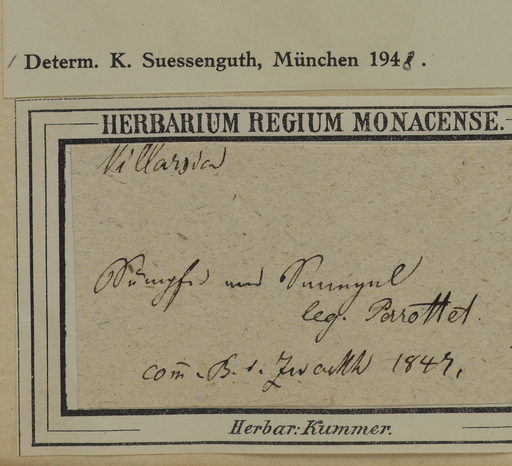 Determ. K. Suessenguth, München 1942.
HERBARIUM REGIUM MONACENSE.
Villarsia
Sümpfe am Senegal
leg. Perrottet.
com̄. B. v. Zwackh 1847.
Herbar: Kummer.